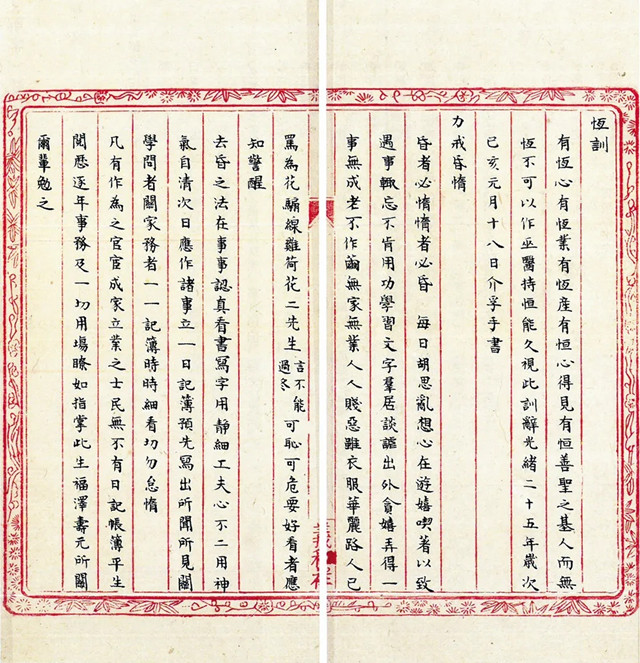 恆訓
有恆心有恆業有恆産有恆心得見有恒善聖之基人而無
恆不可以作巫醫持恒能久視此訓辭光緒二十五年歲次
己亥元月十八日介孚手書
力戒昏惰
昏者必惰惰者必昏　每日胡思亂想心在遊嬉喫著以致
遇事輒忘不肯用功學習文字羣居談謳出外貪嬉弄得一
事無成老不作繭無家無業人人賤惡雖衣服華麗路人已
罵為花騙線雞荷花二先生言不能過冬可恥可危要好看者應
知警醒
去昏之法在事事認真看書寫字用靜細工夫心不二用神
氣自清次日應作諸事立一日記簿預先寫出所聞所見關
學問者關家務者一一記簿時時細看切勿怠惰
凡有作為之官宦成家立業之士民無不有日記帳簿平生
閱歷逐年事務及一切用場瞭如指掌此生福澤壽元所關
爾輩勉之